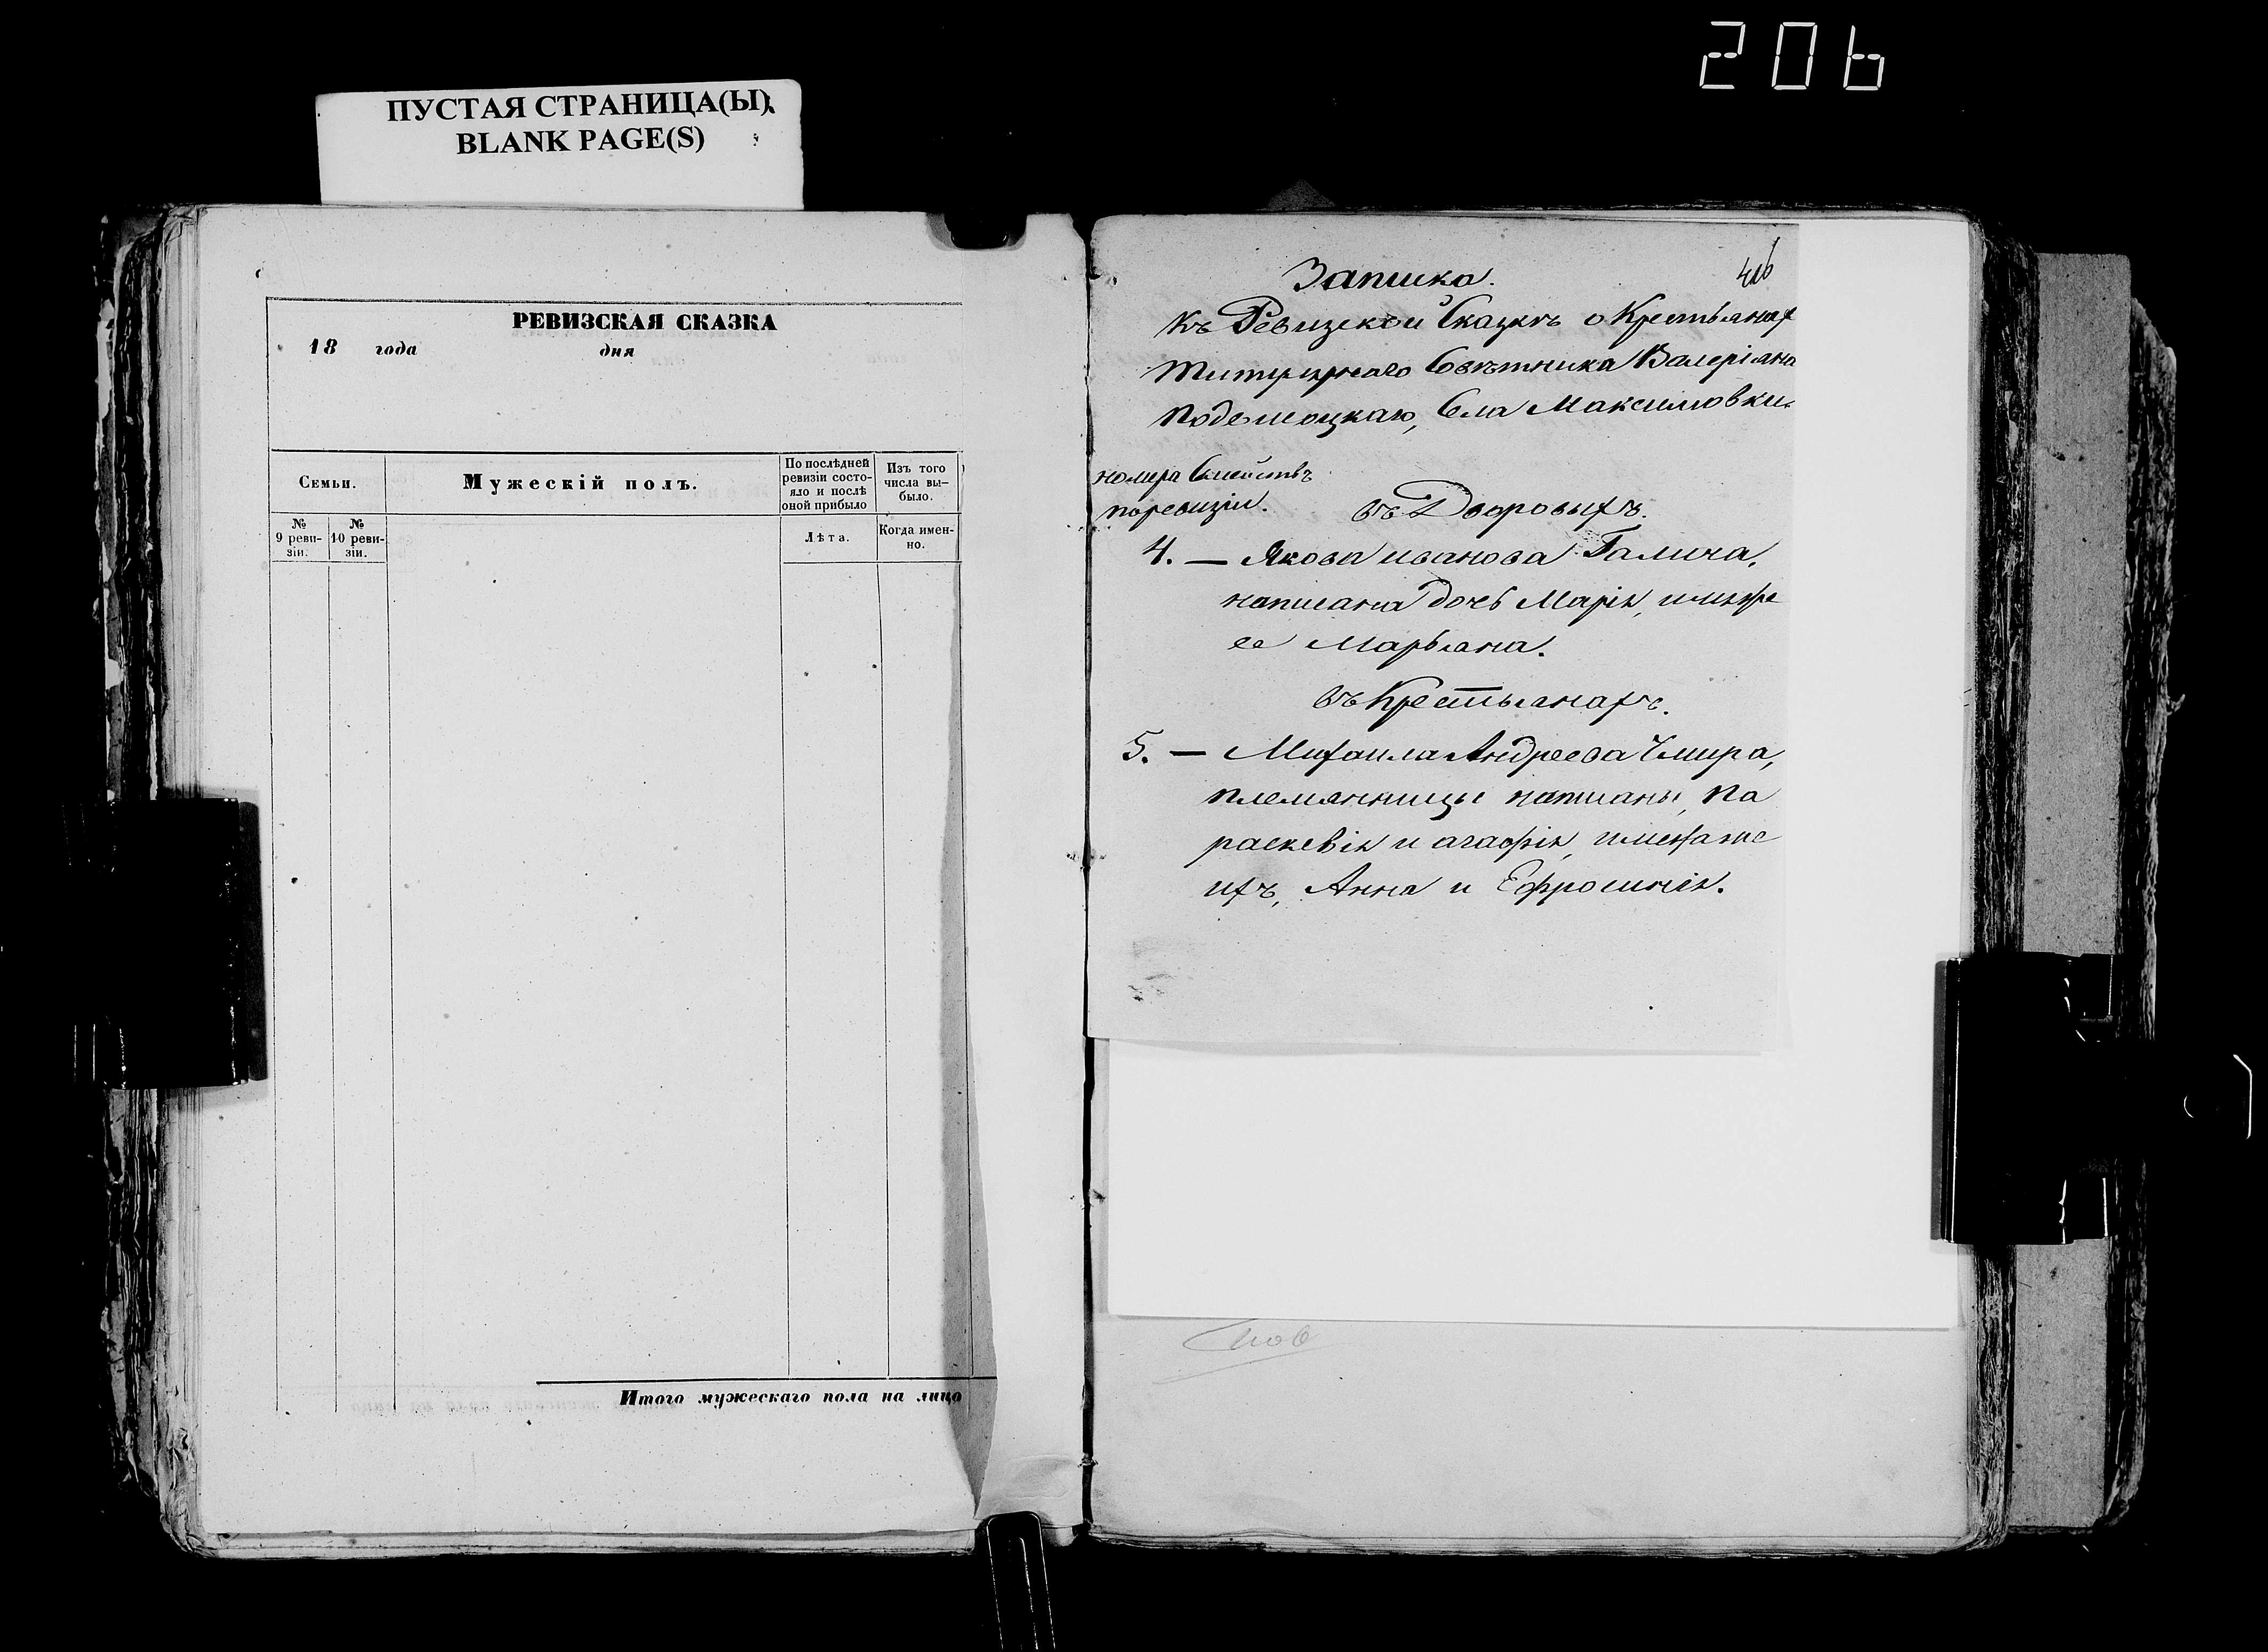 206
ПУСТАЯ СТРАНИЦА(Ы)
BLANK PAGE(S)
РЕВИЗСКАЯ СКАЗКА
18 года дня
Семьи.
Мужескій полъ.
По послѣдней ревизіи состояло и послѣ оной прибыло
Изъ того числа выбыло.
№ 9 ревизіи.
№ 10 ревизіи.
Лѣта.
Когда именно.
Итого мужескаго пола на лицо
Записка.
Къ Ревизской Сказкѣ о Крестьянах
титулярнаго Совѣтника Валеріана
Подемоцкаго, Села Максимовки.
номера Семействъ
по ревизіи.
въ Дворовыхъ.
4. — Якова иванова Галича,
написана дочь Марія, имя же
ее Марьяна.
въ Крестьянахъ.
5. — Михаила Андреева Чмира,
племянницы написаны, Па
раскевія и агафія, имена же
ихъ, Анна и Ефросинія.